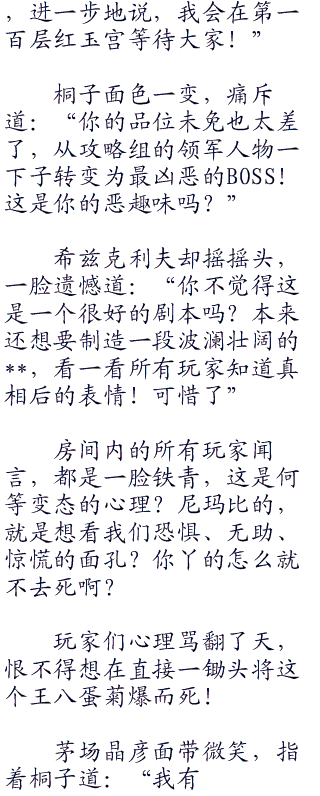 ，进一步地说，我会在第一
百层红玉宫等待大家！”
桐子面色一变，痛斥
道：“你的品位未免也太差
了，从攻略组的领军人物一
下子转变为最凶恶的BOSS！
这是你的恶趣味吗？”
希兹克利夫却摇摇头，
一脸遗憾道：“你不觉得这
是一个很好的剧本吗？本来
还想要制造一段波澜壮阔的
**，看一看所有玩家知道真
相后的表情！可惜了”
房间内的所有玩家闻
言，都是一脸铁青，这是何
等变态的心理？尼玛比的，
就是想看我们恐惧、无助、
惊慌的面孔？你丫的怎么就
不去死啊？
玩家们心理骂翻了天，
恨不得想在直接一锄头将这
个王八蛋菊爆而死！
茅场晶彦面带微笑，指
着桐子道：“我有